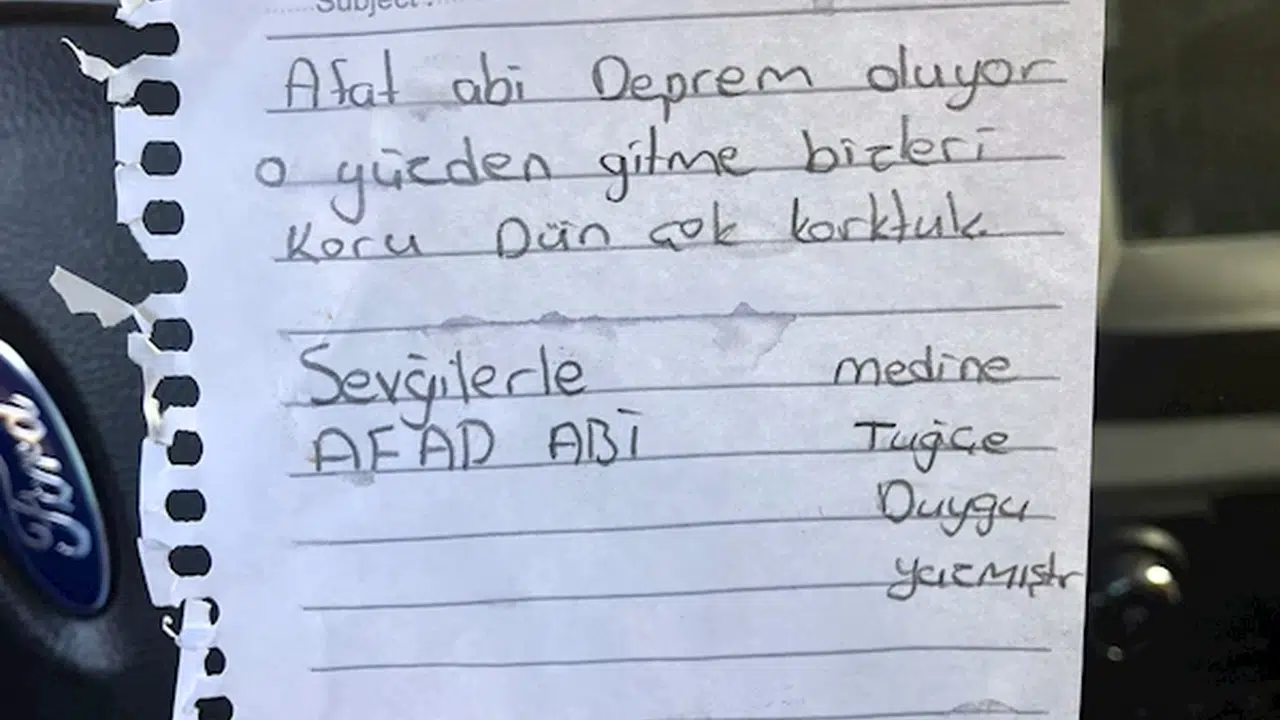 Subject :
Afat abi Deprem oluyor
o yüzden gitme bizleri
Koru Dün çok korktuk.
Sevğilerle medine
AFAD ABİ Tuğçe
Duygu
yazmıştr
Ford